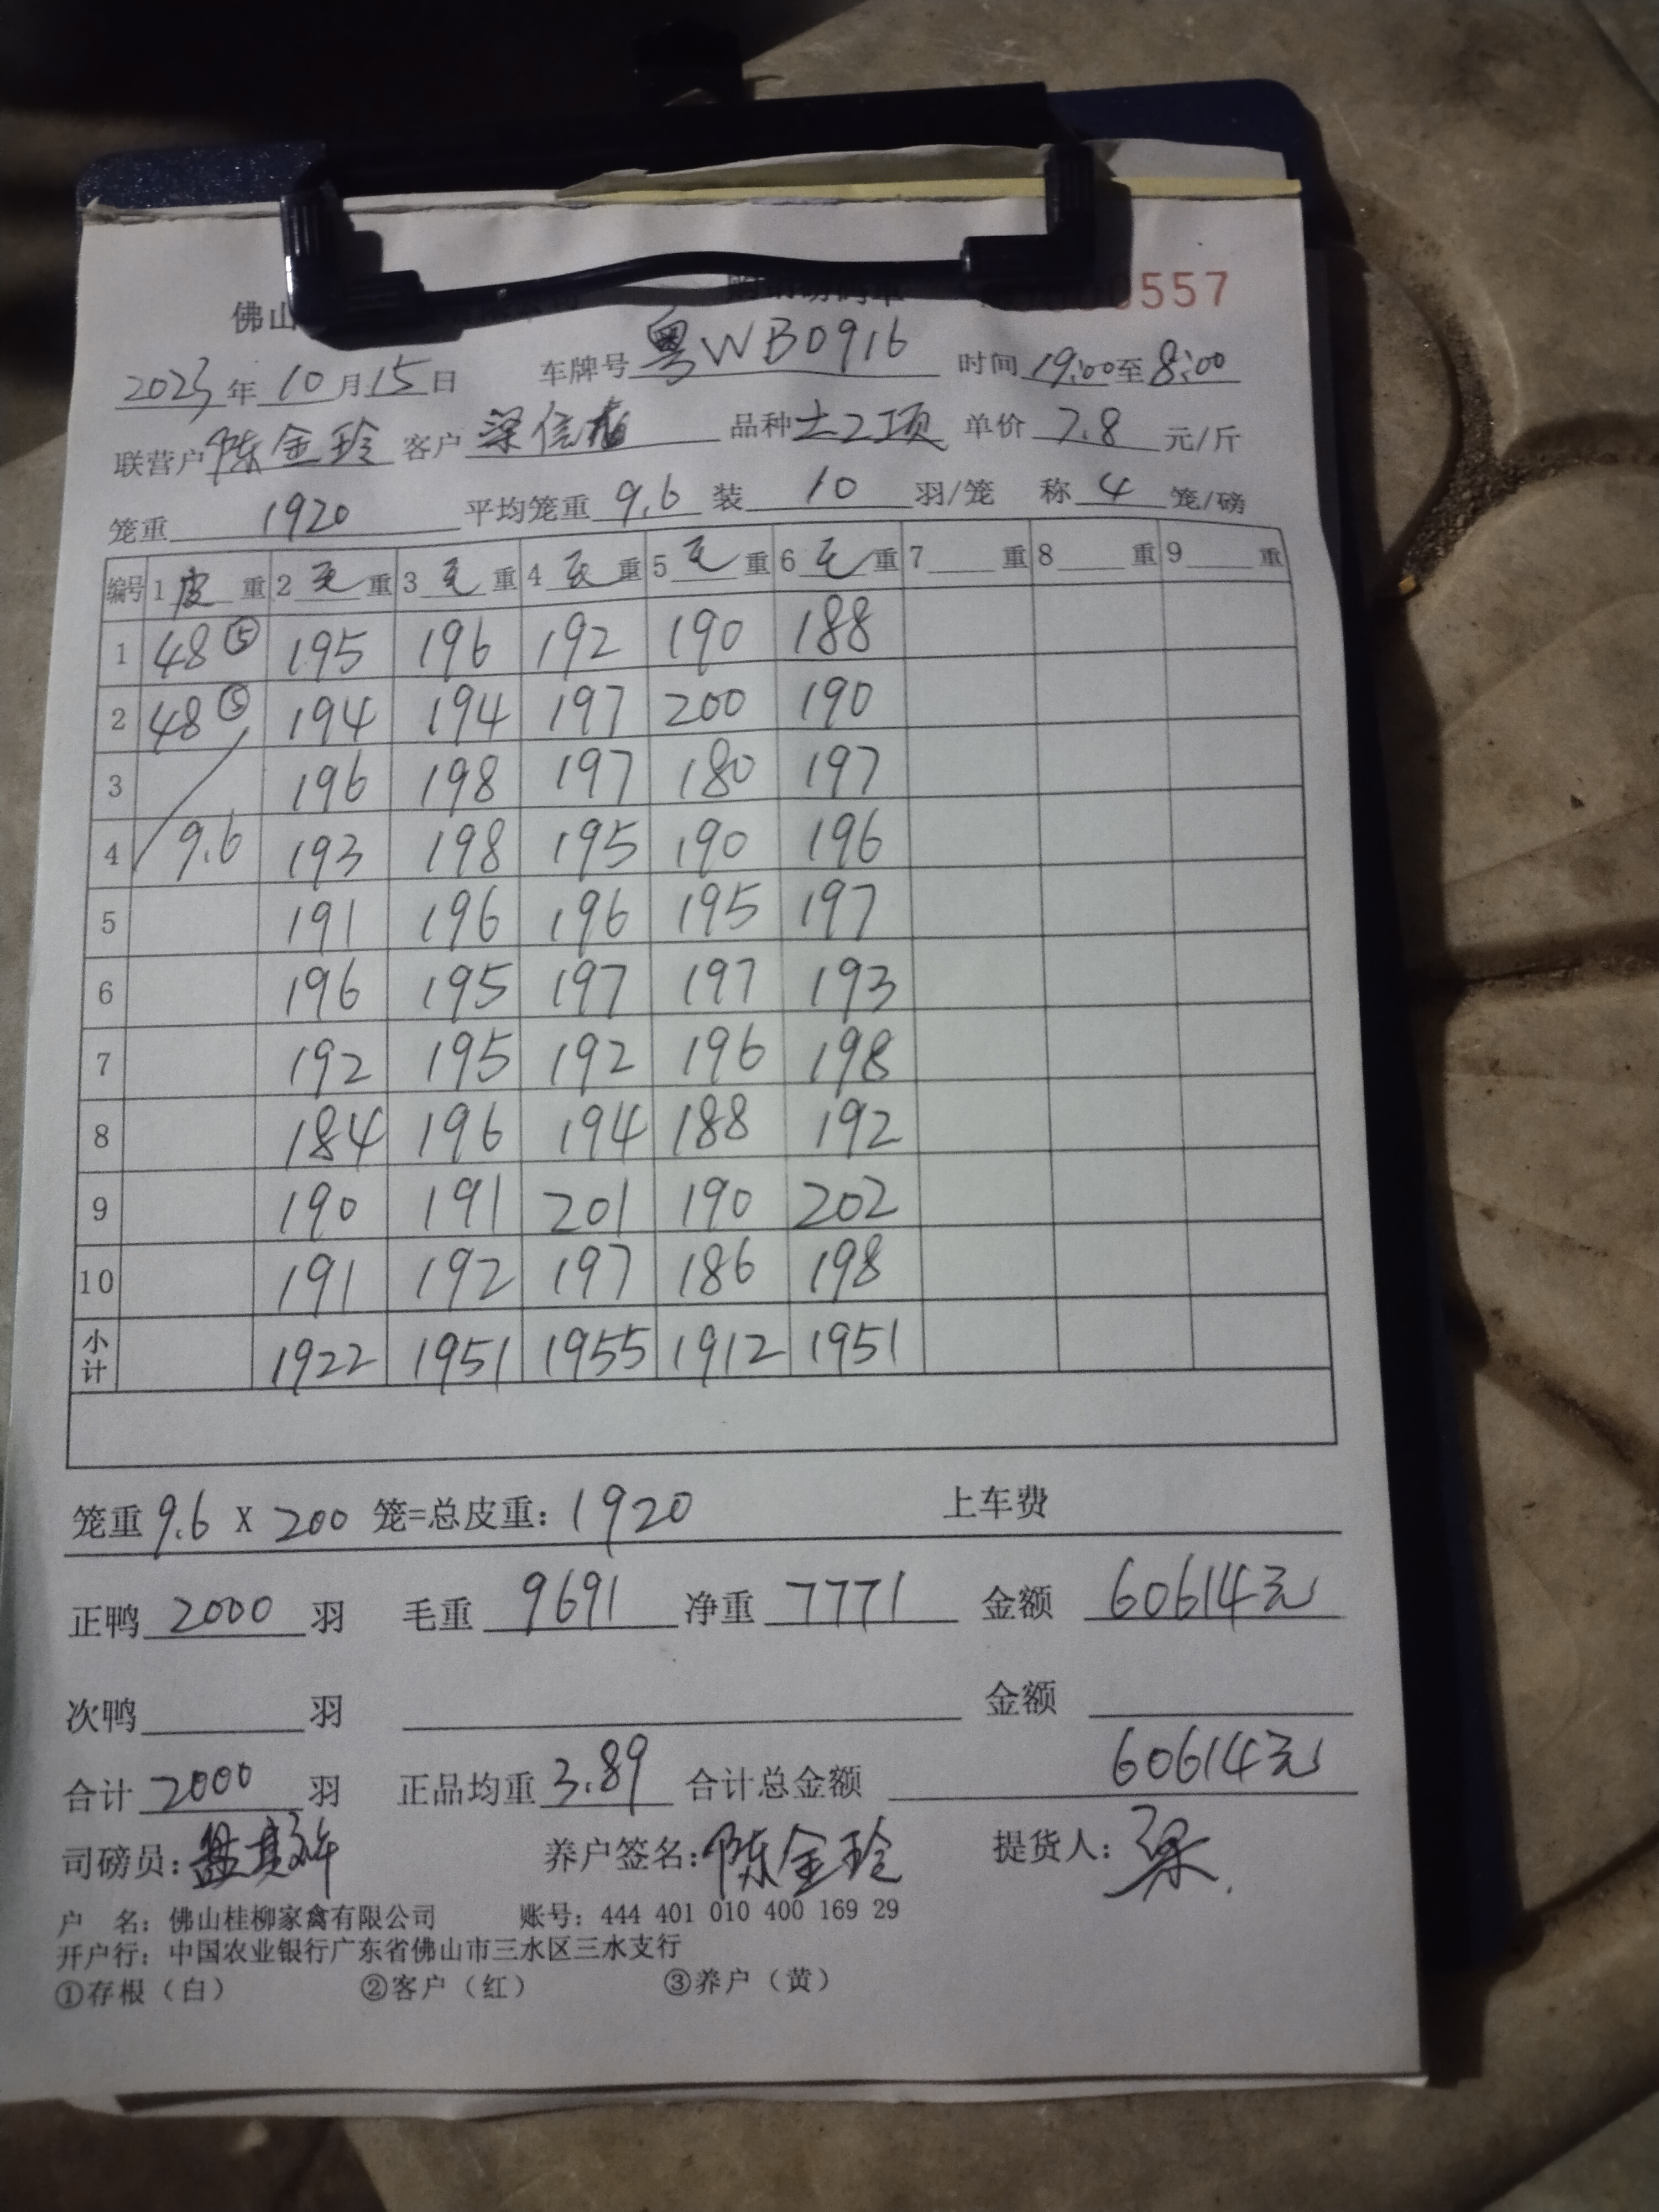 佛山 557
2023年10月15日 车牌号粤WB0916 时间19:00至8:00
联营户陈金玲 客户梁信 品种土2项 单价7.8元/斤
笼重1920 平均笼重9.6 装10羽/笼 称4笼/磅
编号 1皮重 2毛重 3毛重 4毛重 5毛重 6毛重 7重 8重 9重
1 48⑤ 195 196 192 190 188
2 48⑤ 194 194 197 200 190
3 196 198 197 180 197
4 9.6 193 198 195 190 196
5 191 196 196 195 197
6 196 195 197 197 193
7 192 195 192 196 198
8 184 196 194 188 192
9 190 191 201 190 202
10 191 192 197 186 198
小计 1922 1951 1955 1912 1951
笼重9.6 X 200 笼=总皮重：1920 上车费
正鸭2000羽 毛重9691 净重7771 金额60614元
次鸭 羽 金额
合计2000羽 正品均重3.89 合计总金额60614元
司磅员： 养户签名：陈金玲 提货人：梁
户 名：佛山桂柳家禽有限公司 账号：444 401 010 400 169 29
开户行：中国农业银行广东省佛山市三水区三水支行
①存根（白） ②客户（红） ③养户（黄）